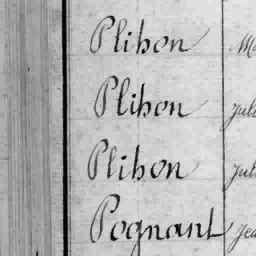 Plihon
Plihon
Plihon
Pognant